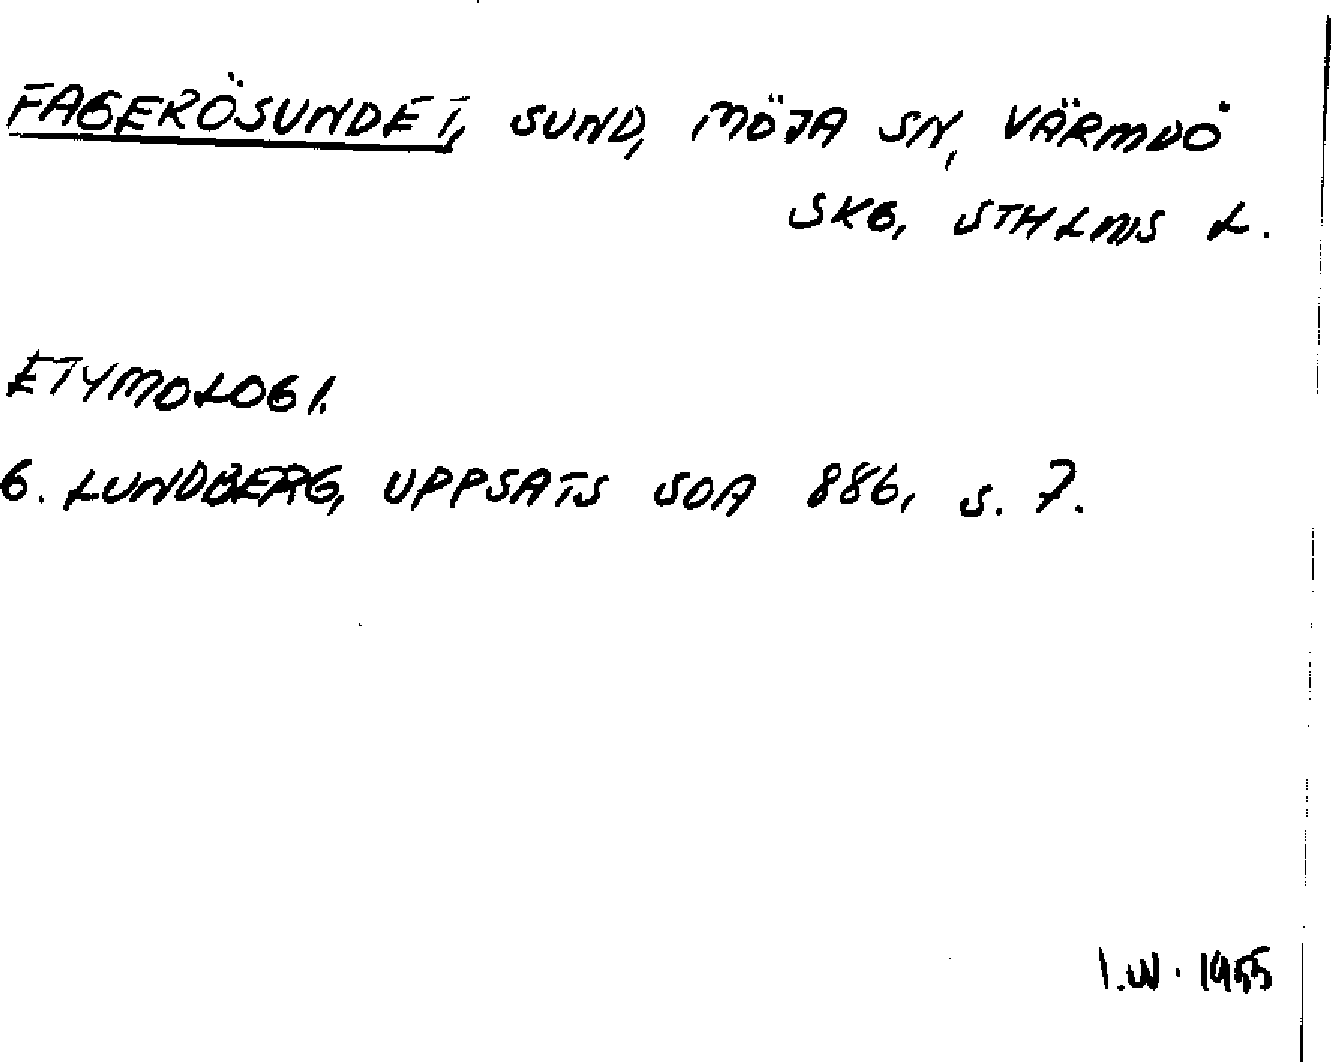 FAGERÖSUNDET, SUND, MÖJA SN, VÄRMDÖ
SKG, STHLMS L.
ETYMOLOGI.
G. LUNDBERG, UPPSATS SOA 886, S. 7.
I.W. 1955